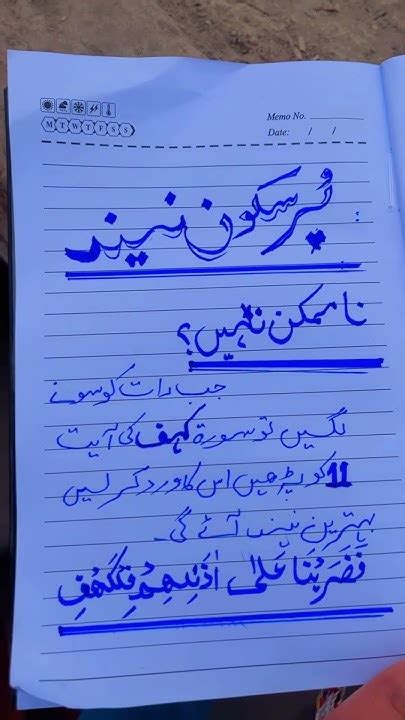 Memo No.
M T W T F S S
Date: / /
پُر سکون نیند
نا ممکن نہیں؟
جب رات کو سونے
لگیں تو سورۃ کہف کی آیت
11 کو پڑھیں اس کا ورد کر لیں
بہترین نیند آئے گی۔
فَضَرَبْنَا عَلٰی اٰذَانِهِمْ فِی الْكَهْفِ